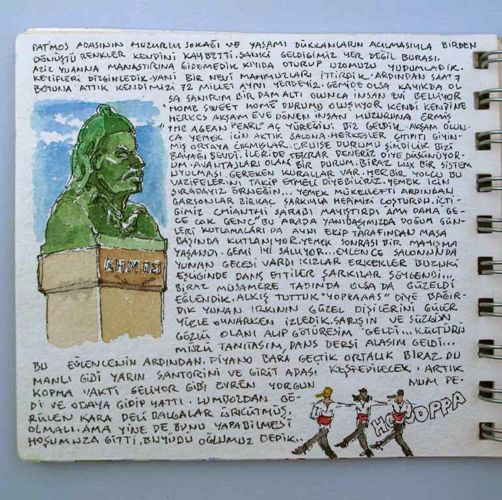 PATMOS ADASININ HUZURLU SOKAĞI VE YAŞAMI DÜKKANLARIN AÇILMASIYLA BİRDEN
DÖNÜŞTÜ RENKLER KENDİNİ KAYBETTİ. SANKİ GELDİĞİMİZ YER DEĞİL BURASI.
AZİZ YUANNA MANASTIRINA GİDEMEDİK KIYIDA OTURUP UZOMUZU YUDUMLADIK.
KEYİFLERİ DİZGİNLEDİK. YANİ BİR NEVİ MAHMUZLARI İTTİRDİK. ARDINDAN SAAT 7
BOTUNA ATTIK KENDİMİZİ 72 MİLLET AYNI YERDEYİZ. GEMİDE OLSA KAYIKDA OL-
SA SANIRIM BİR DAM ALTI OLUNCA İNSAN EVİ BELLİYOR
HOME SWEET HOME DURUMU OLUŞUYOR KENDİ KENDİNE
HERKES AKŞAM EVE DÖNEN İNSAN HUZURUNA ERMİŞ
THE AGEAN PEARL' AÇ YÜREĞİNİ BİZ GELDİK. AKŞAM OLUN-
CA YEMEK İÇİN AKTIK SALONA. HERKESLER ÇITIPITI GİYİN-
MİŞ ORTAYA ÇIKMIŞLAR. CRUISE DURUMU ŞİMDİLİK BİZİ
BAYAĞI SEVDİ. İLERİDE TEKRAR DENERİZ DİYE DÜŞÜNÜYOR-
UM. AVANTAJLARI OLAN BİR DURUM. BİRAZ LUX BİR SİSTEM
UYULMASI GEREKEN KURALLAR VAR. HER BİR YOLCU BU
VAZİFELERİNİ TAKİP ETMELİ DİYEBİLİRİZ. YEMEK İÇİN
SIRADAYIZ ÖRNEĞİN... YEMEK MÜKELLEFTİ ARDINDAN
GARSONLAR BİRKAÇ ŞARKIYLA HEPİMİZİ COŞTURDU. İÇTİ-
ĞİMİZ ŞARABI MAYHOŞTU AMA DAHA GE-
CE ÇOK GENÇ. BU ARADA YANIBAŞIMIZDA DOĞUM GÜN-
LERİ KUTLAMALARI DA AYNI EKİP TARAFINDAN MASA
BAŞINDA KUTLANIYOR. YEMEK SONRASI BİR MAYIŞMA
YAŞANDI. GEMİ Mİ SALLIYOR... EĞLENCE SALONUNDA
YUNAN GECESİ VARDI KIZLAR ERKEKLER BUZUKİ
EŞLİĞİNDE DANS ETTİLER ŞARKILAR SÖYLENDİ...
BİRAZ MÜSAMERE TADINDA OLSA DA GÜZELDİ
EĞLENDİK. ALKIŞ TUTTUK "YOPRAAAŞ" DİYE BAĞIR-
DIK YUNAN IRKININ GÜZEL DİŞİLERİNİ GÜLER
YÜZLE OYNARKEN İZLEDİK. SARIŞIN VE SÜZGÜN
GÖZLÜ OLANI ALIP GÖTÜRESİM GELDİ... KÜLTÜRÜ
MÜZÜ TANITASIM, DANS DERSİ ALASIM GELDİ...
BU EĞLENCENİN ARDINDAN PİYANO BARA GEÇTİK ORTALIK BİRAZ DU
MANLI GİBİ YARIN SANTORİNİ VE GİRİT ADASI KEŞFEDİLECEK. ARTIK
KOPMA VAKTİ GELİYOR GİBİ EVREN YORGUN MUM PE-
Dİ VE ODAYA GİDİP YATTI. LUMBOZDAN GÖ-
RÜLEN KARA DELİ DALGALAR ÜRKÜTMÜŞ
OLMALI. AMA YİNE DE BUNU YAPABİLMESİ
HOŞUMUZA GİTTİ. BÜYÜDÜ OĞLUMUZ DEDİK..
HOOOPPA